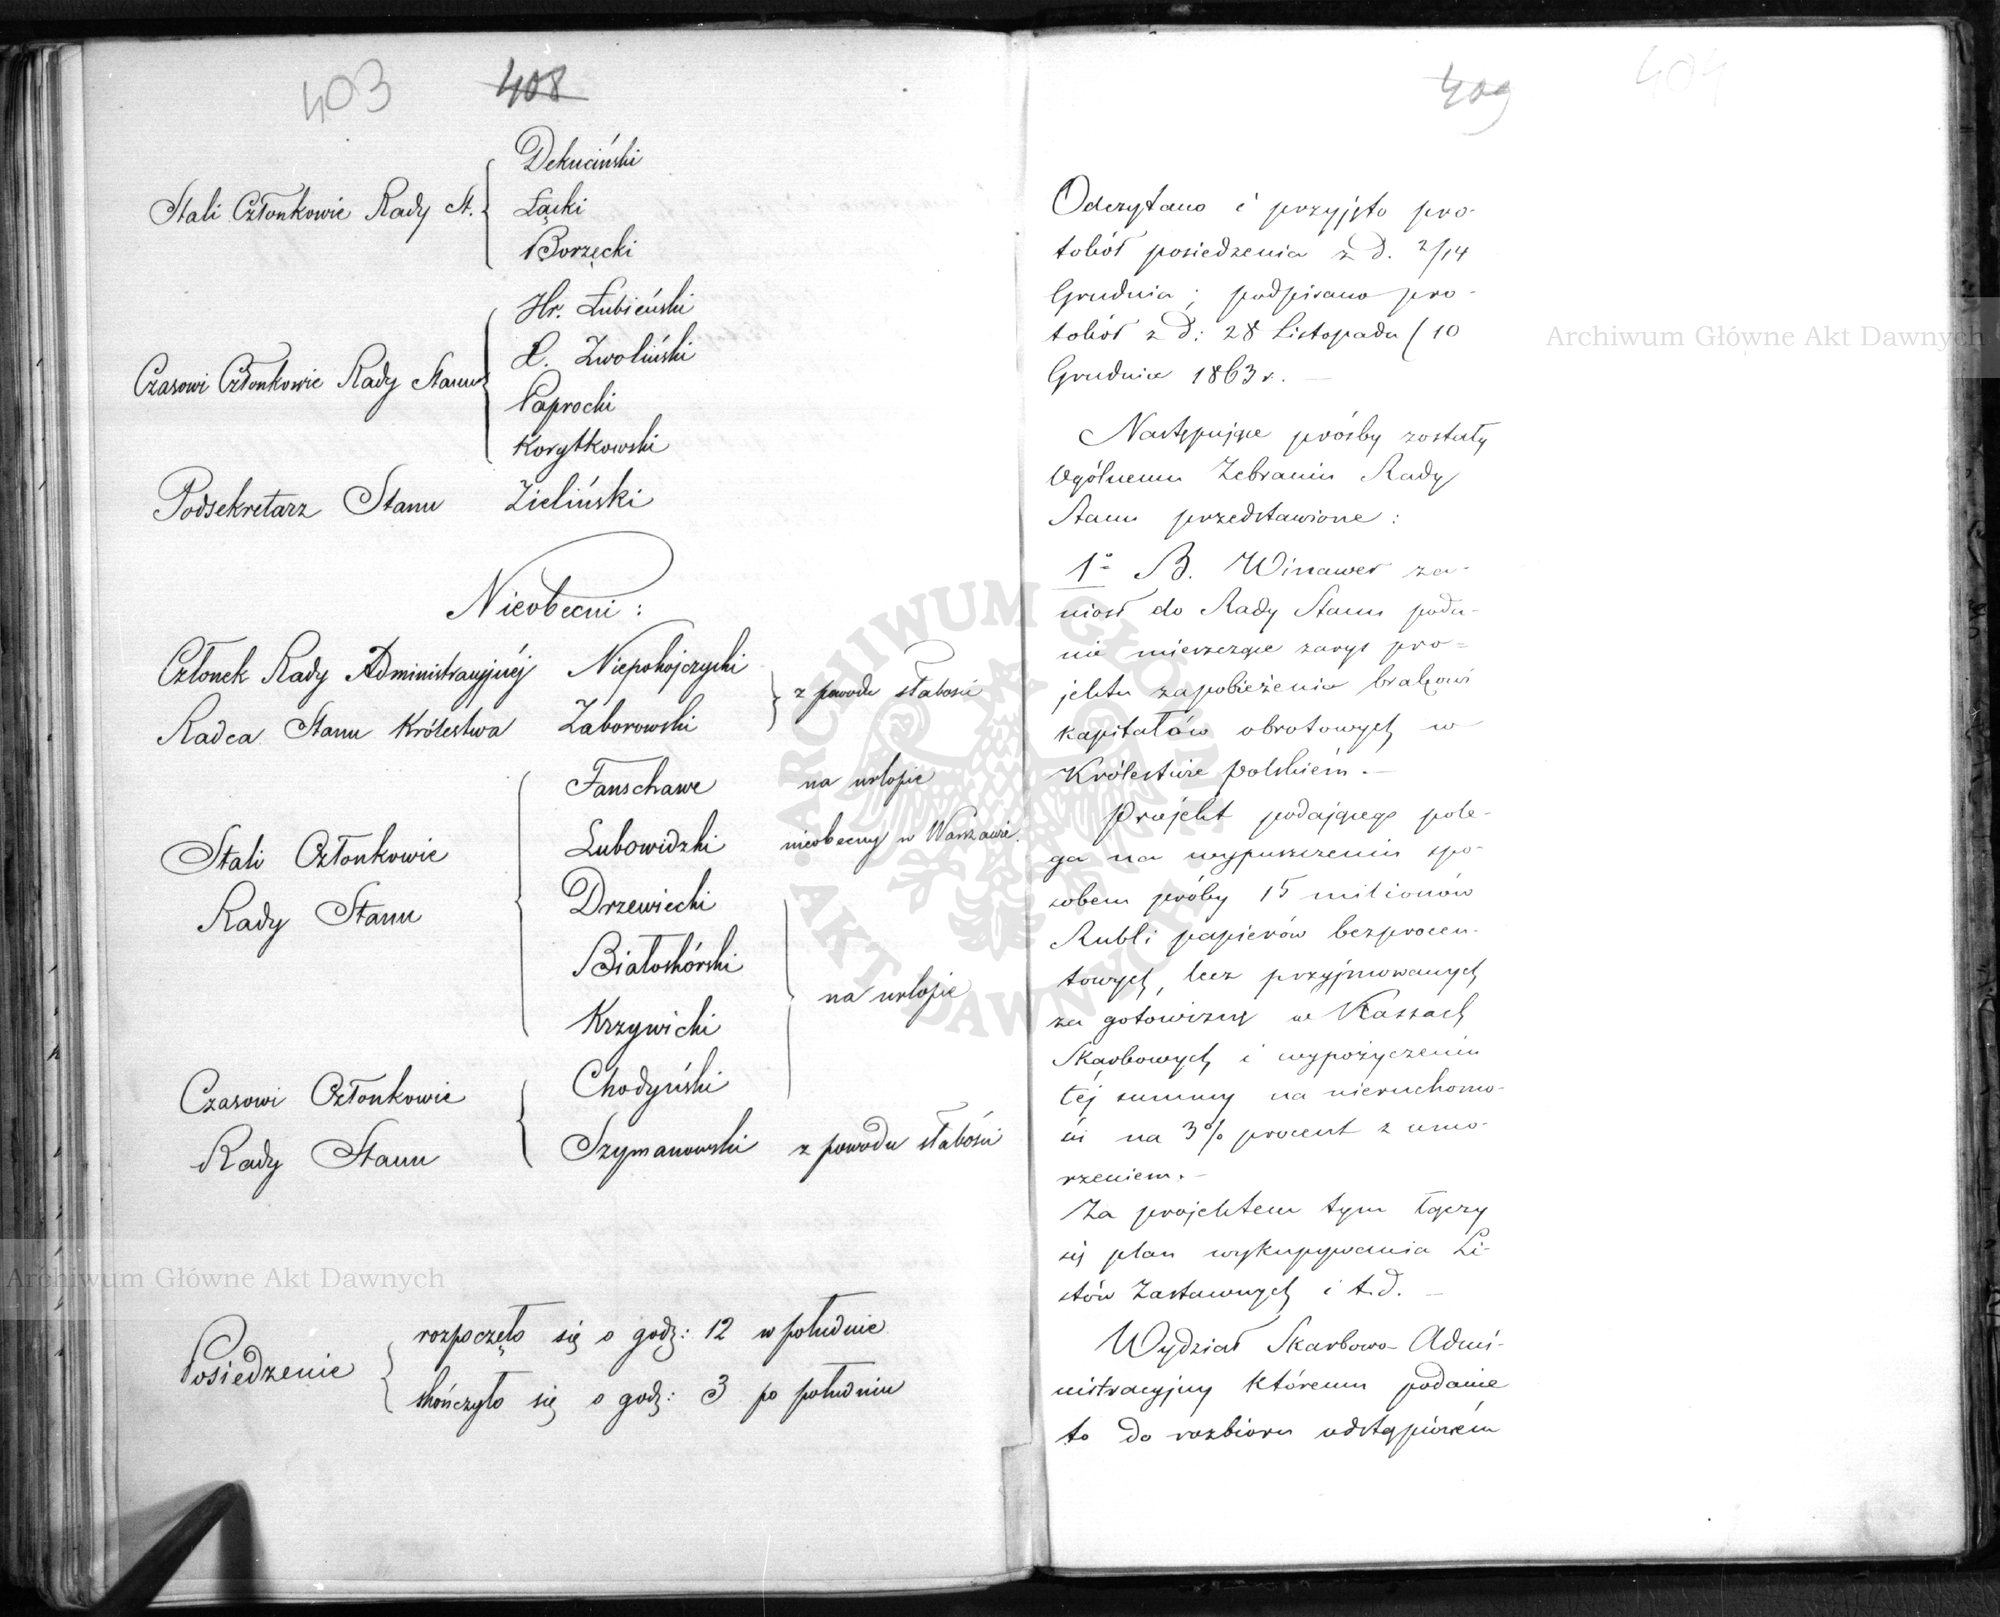 403 408
Stali Członkowie Rady St.
Dekuciński
Łącki
Borzęcki
Czasowi Członkowie Rady Stanu
Hr. Łubieński
L. Zwoliński
Paprocki
Korytkowski
Podsekretarz Stanu Zieliński
Nieobecni:
Członek Rady Administracyjnéj Niepokójczycki
Radca Stanu Królestwa Zaborowski
z powodu słabości
Stali Członkowie
Rady Stanu
Fanschawe na urlopie
Lubowidzki nieobecny w Warszawie.
Drzewiecki
Białoskórski
Krzywicki
na urlopie
Czasowi Członkowie
Rady Stanu
Chodyński
Szymanowski z powodu słabości
Posiedzenie
rozpoczęło się o godz: 12 w południe
skończyło się o godz: 3 po południu
409 404
Odczytano i przyjęto pro-
tokół posiedzenia z d. 2/14
Grudnia; podpisano pro-
tokół z d: 28 Listopada (10
Grudnia 1863 r. —
Następujące prośby zostały
Ogólnemu Zebraniu Rady
Stanu przedstawione:
1º B. Winawer za-
niosł do Rady Stanu poda-
nie mieszczące zarys pro-
jektu zapobieżenia brakowi
kapitałów obrotowych w
Królestwie Polskiém. —
Projekt podającego pole-
ga na wypuszczeniu spo-
sobem próby 15 milionów
Rubli papierów bezprocen-
towych, lecz przyjmowanych
za gotowiznę w Kassach
Skarbowych i wypożyczeniu
téj summy na nieruchomo-
ści na 3% procent z umo-
rzeniem. —
Za projektem tym łączy
się plan wykupywania Li-
stów Zastawnych i t.d. —
Wydział Skarbowo Admi-
nistracyjny któremu podanie
to do rozbioru odstąpiońém
Archiwum Główne Akt Dawnych
Archiwum Główne Akt Dawnych
ARCHIWUM GŁÓWNE AKT DAWNYCH